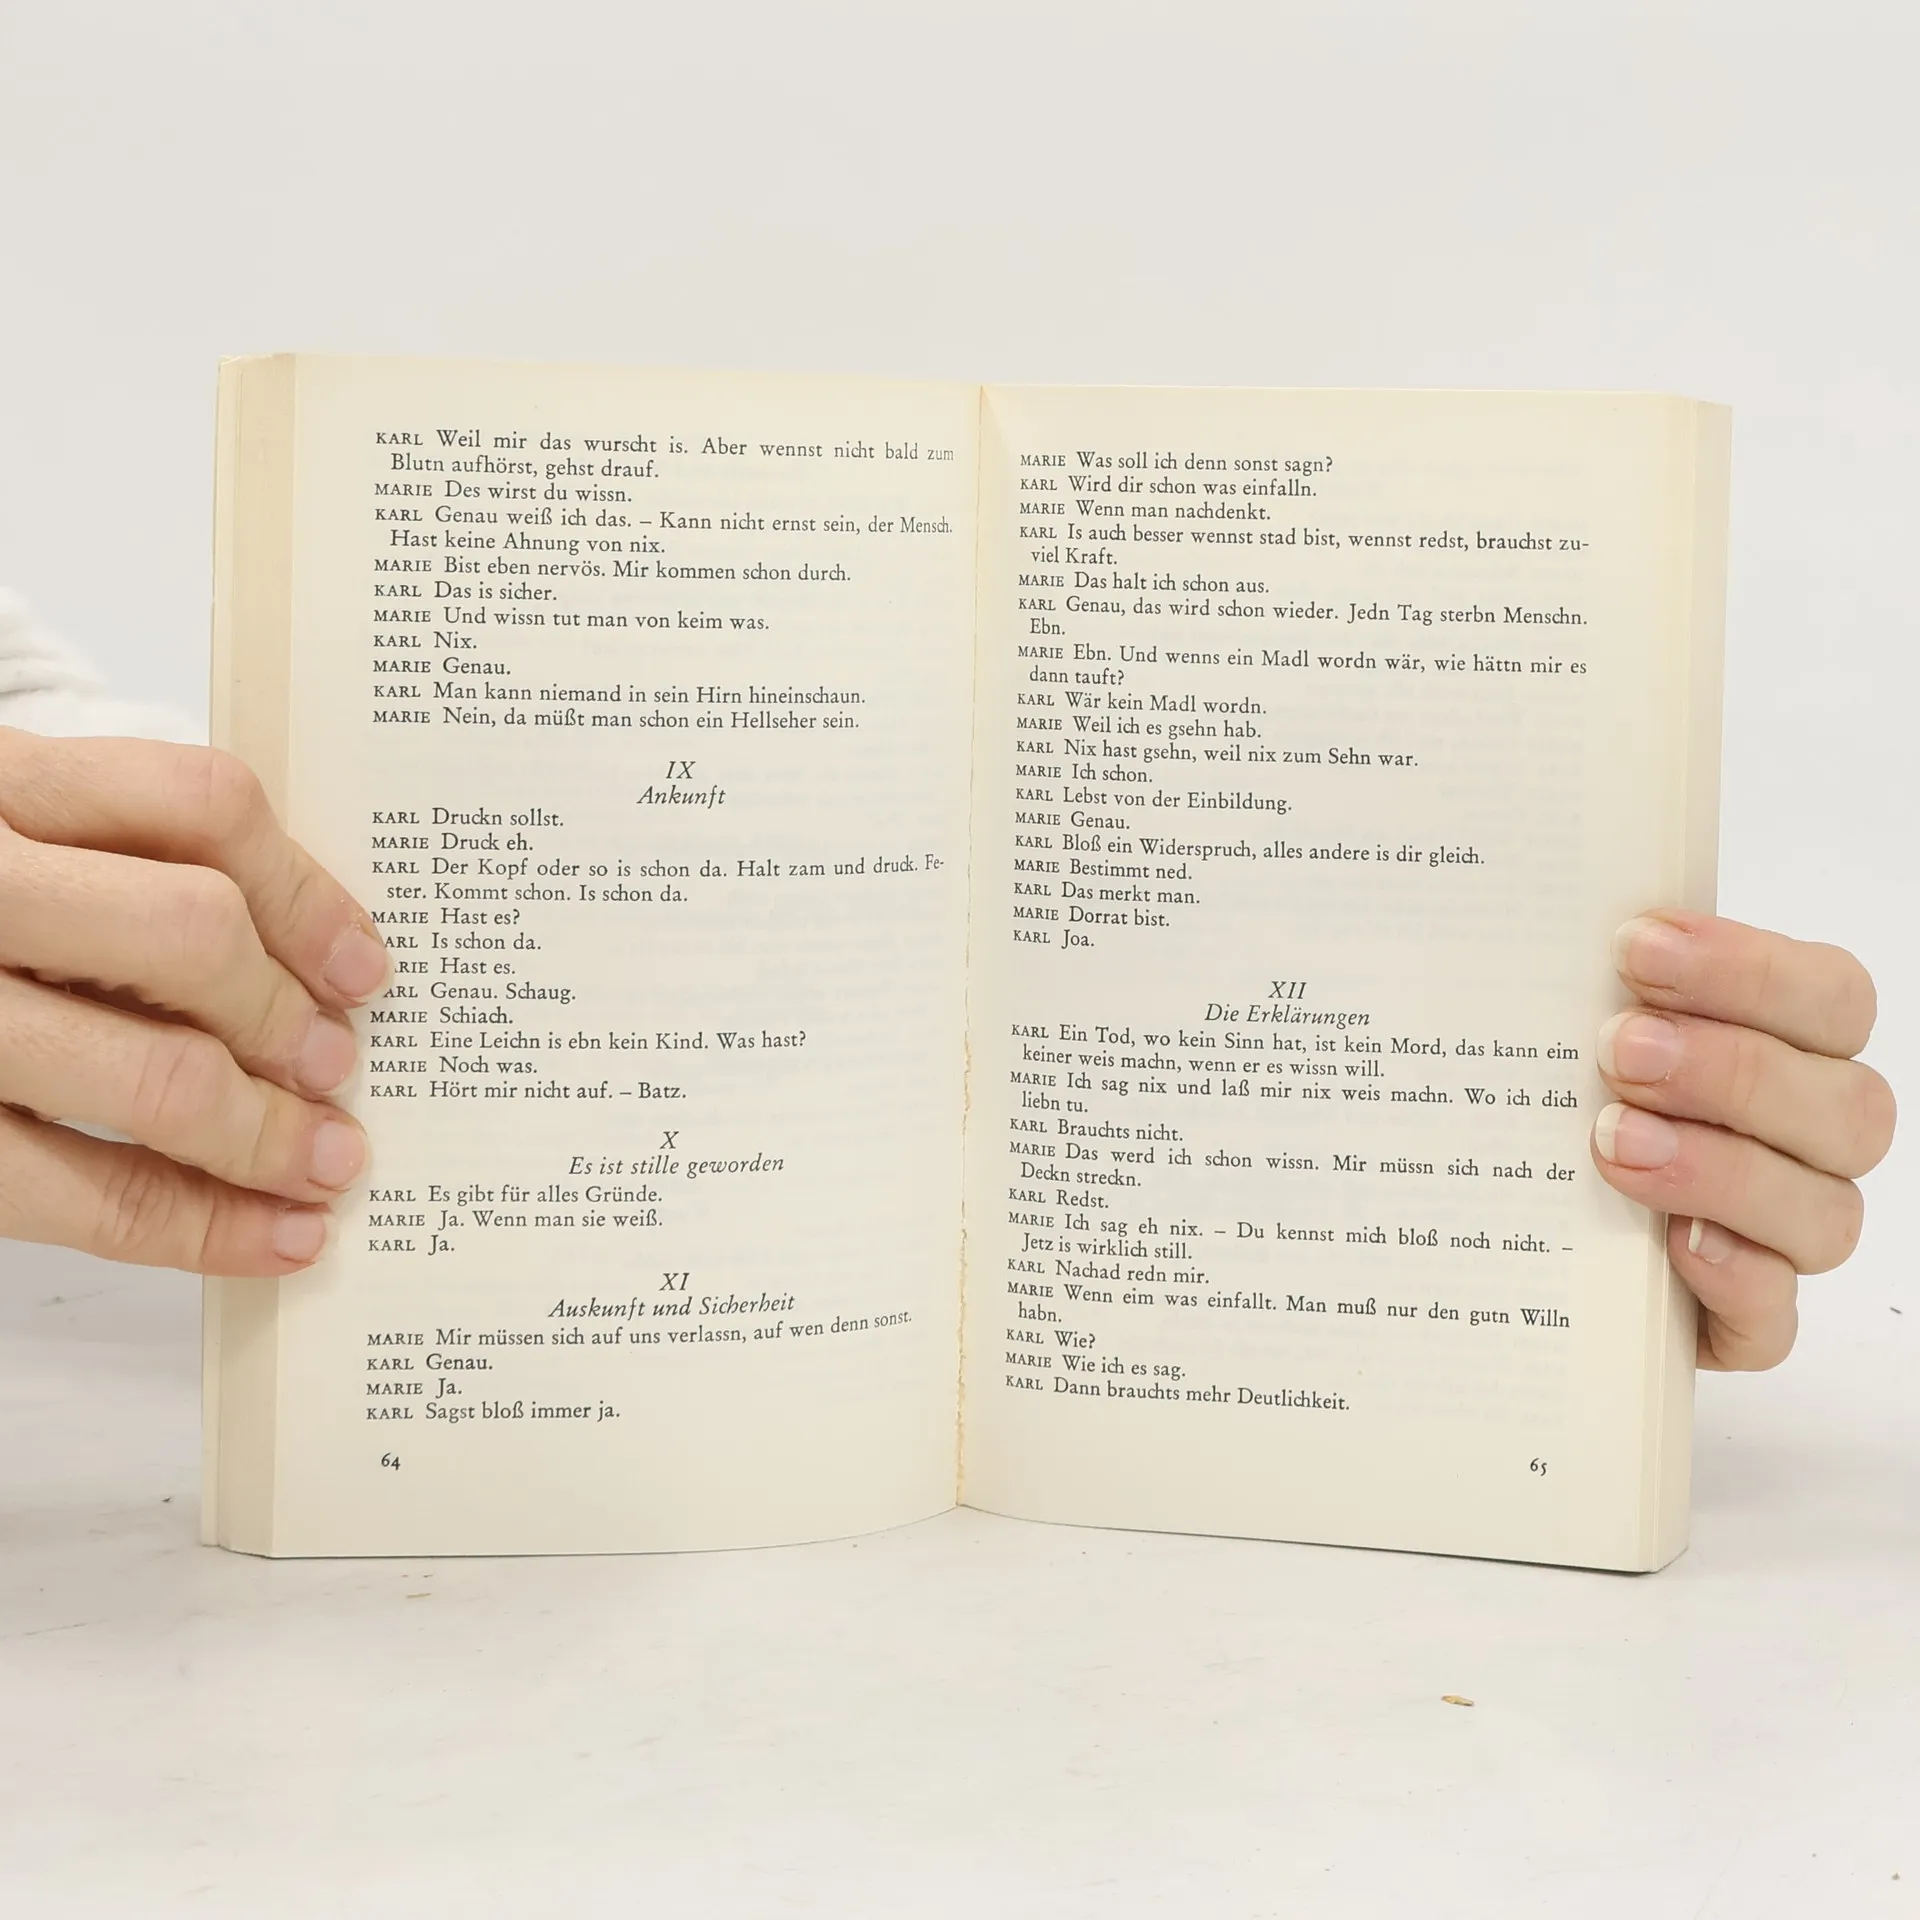 KARL Weil mir das wurscht is. Aber wennst nicht bald zum
Blutn aufhörst, gehst drauf.
MARIE Des wirst du wissn.
KARL Genau weiß ich das. – Kann nicht ernst sein, der Mensch.
Hast keine Ahnung von nix.
MARIE Bist eben nervös. Mir kommen schon durch.
KARL Das is sicher.
MARIE Und wissn tut man von keim was.
KARL Nix.
MARIE Genau.
KARL Man kann niemand in sein Hirn hineinschaun.
MARIE Nein, da müßt man schon ein Hellseher sein.
IX
Ankunft
KARL Druckn sollst.
MARIE Druck eh.
KARL Der Kopf oder so is schon da. Halt zam und druck. Fe-
ster. Kommt schon. Is schon da.
MARIE Hast es?
ARL Is schon da.
RIE Hast es.
ARL Genau. Schaug.
MARIE Schiach.
KARL Eine Leichn is ebn kein Kind. Was hast?
MARIE Noch was.
KARL Hört mir nicht auf. – Batz.
X
Es ist stille geworden
KARL Es gibt für alles Gründe.
MARIE Ja. Wenn man sie weiß.
KARL Ja.
XI
Auskunft und Sicherheit
MARIE Mir müssen sich auf uns verlassn, auf wen denn sonst.
KARL Genau.
MARIE Ja.
KARL Sagst bloß immer ja.
64
MARIE Was soll ich denn sonst sagn?
KARL Wird dir schon was einfalln.
MARIE Wenn man nachdenkt.
KARL Is auch besser wennst stad bist, wennst redst, brauchst zu-
viel Kraft.
MARIE Das halt ich schon aus.
KARL Genau, das wird schon wieder. Jedn Tag sterbn Menschn.
Ebn.
MARIE Ebn. Und wenns ein Madl wordn wär, wie hättn mir es
dann tauft?
KARL Wär kein Madl wordn.
MARIE Weil ich es gsehn hab.
KARL Nix hast gsehn, weil nix zum Sehn war.
MARIE Ich schon.
KARL Lebst von der Einbildung.
MARIE Genau.
KARL Bloß ein Widerspruch, alles andere is dir gleich.
MARIE Bestimmt ned.
KARL Das merkt man.
MARIE Dorrat bist.
KARL Joa.
XII
Die Erklärungen
KARL Ein Tod, wo kein Sinn hat, ist kein Mord, das kann eim
keiner weis machn, wenn er es wissn will.
MARIE Ich sag nix und laß mir nix weis machn. Wo ich dich
liebn tu.
KARL Brauchts nicht.
MARIE Das werd ich schon wissn. Mir müssn sich nach der
Deckn streckn.
KARL Redst.
MARIE Ich sag eh nix. – Du kennst mich bloß noch nicht. –
Jetz is wirklich still.
KARL Nachad redn mir.
MARIE Wenn eim was einfallt. Man muß nur den gutn Willn
habn.
KARL Wie?
MARIE Wie ich es sag.
KARL Dann brauchts mehr Deutlichkeit.
65